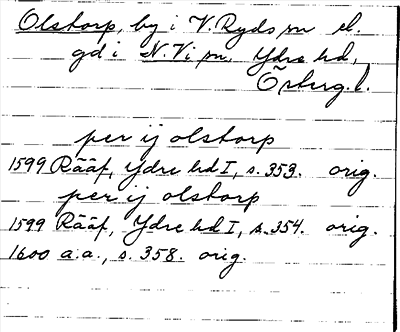 Olstorp, by i V. Ryds sn el.
gd i N. Vi sn, Ydre hd,
Österg. l.
per ij olstorp
1599 Rääf, Ydre hd I, s. 353. orig.
per ij olstorp
1599 Rääf, Ydre hd I, s. 354. orig.
1600 a.a., s. 358. orig.